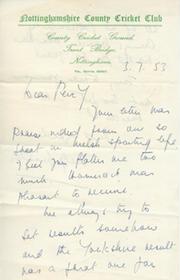 Nottinghamshire County Cricket Club
County Cricket Ground,
Trent Bridge,
Nottingham.
3.7.53
Dear
Your letter was
indeed from one so
great in sporting life
I feel you flatter me too
much
pleasant to receive.
We always try to
get results somehow
and the Yorkshire result
was a great one for